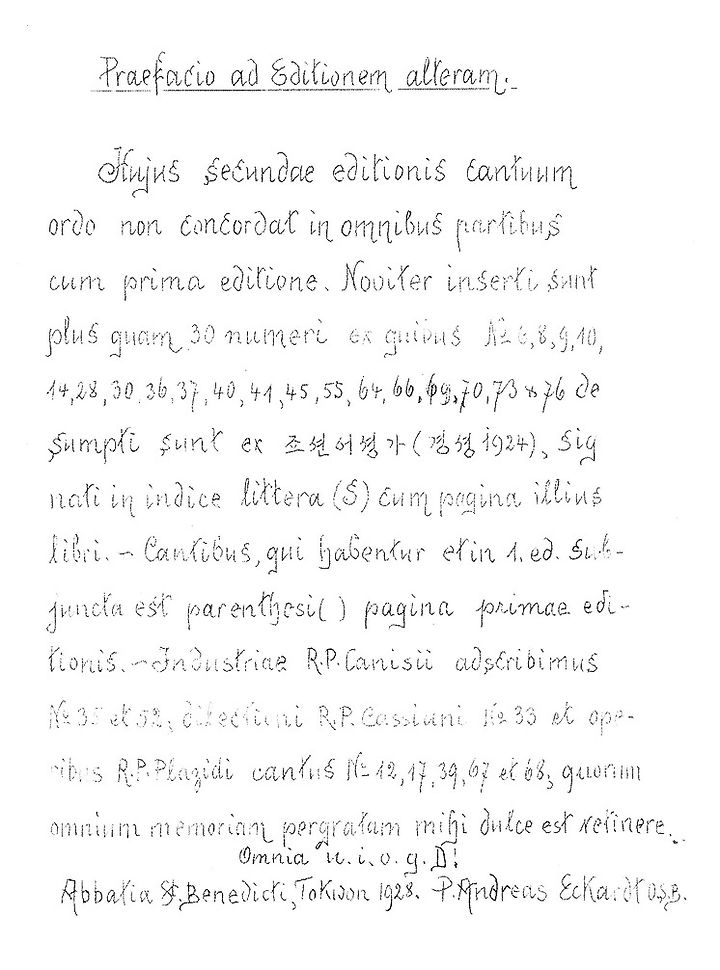 Praefacio ad Editionem alteram.
Hujus secundae editionis cantuum
ordo non concordat in omnibus partibus
cum prima editione. Noviter inserti sunt
plus quam 30 numeri ex quibus № 6,8,9,10,
14,28,30,36,37,40,41,45,55,64,66,69,70,73 & 76 de
sumpti sunt ex 조선어성가 (경성 1924), sig
nati in indice littera (S) cum pagina illius
libri. – Cantibus, qui habentur et in 1. ed. sub-
juncta est parenthesi ( ) pagina primae edi-
tionis. – Industriae R.P. Canisii adscribimus
№ 35 et 52, R.P. Cassiani № 33 et ope-
ribus R.P. Plazidi cantus № 12,17,39,67 et 68, quorum
omnium memoriam pergratam mihi dulce est retinere.
Omnia u. i. o. g. D!
Abbatia St. Benedicti, Tokwon 1928. P. Andreas Eckardt O.S.B.